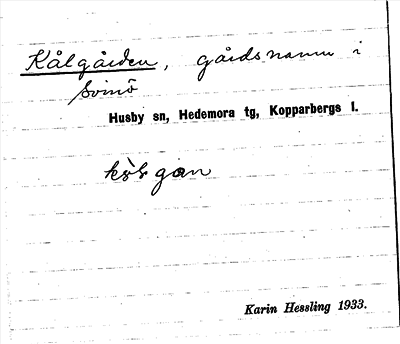 Kålgården, gårdsnamn i
Svinö
Husby sn, Hedemora tg, Kopparbergs l.
gan
Karin Hessling 1933.